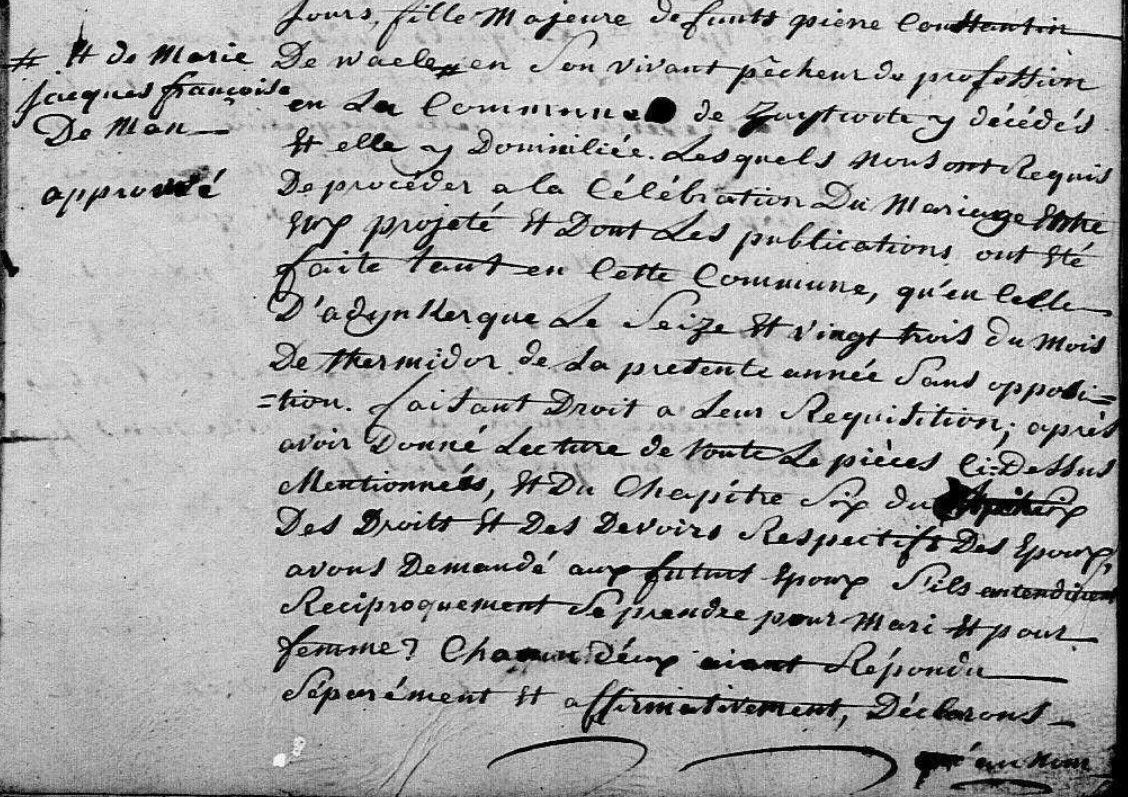 jours, fille Majeure defunts piere Constantin
De waele # en Son vivant pêcheur de profession
en La Commune de Zuytcote y décédés
Et elle y Domiciliée. Lesquels Nous ont Requis
De procéder a la Célébration Du Mariage Entre
Eux projeté Et Dont Les publications ont Eté
faite tant en Cette Commune, qu'en Celle
D'adynkerque Le Seize Et vingt trois du Mois
De thermidor de La presente année Sans opposi=
=tion. faisant Droit a Leur Requisition; après
avoir Donné Lecture de toute Le pièces Ci-Dessus
Mentionnées, Et Du Chapitre Six du
Des Droits Et Des Devoirs Respectifs Des Epoux,
avons Demandé aux futurs Epoux S'ils entendirent
Reciproquement Se prendre pour Mari Et pour
femme? Chacun d'eux aiant Répondu
Séparément Et affirmativement, Déclarons
qu'au Nom
# Et de Marie
jacques françoise
De Man
approuvé